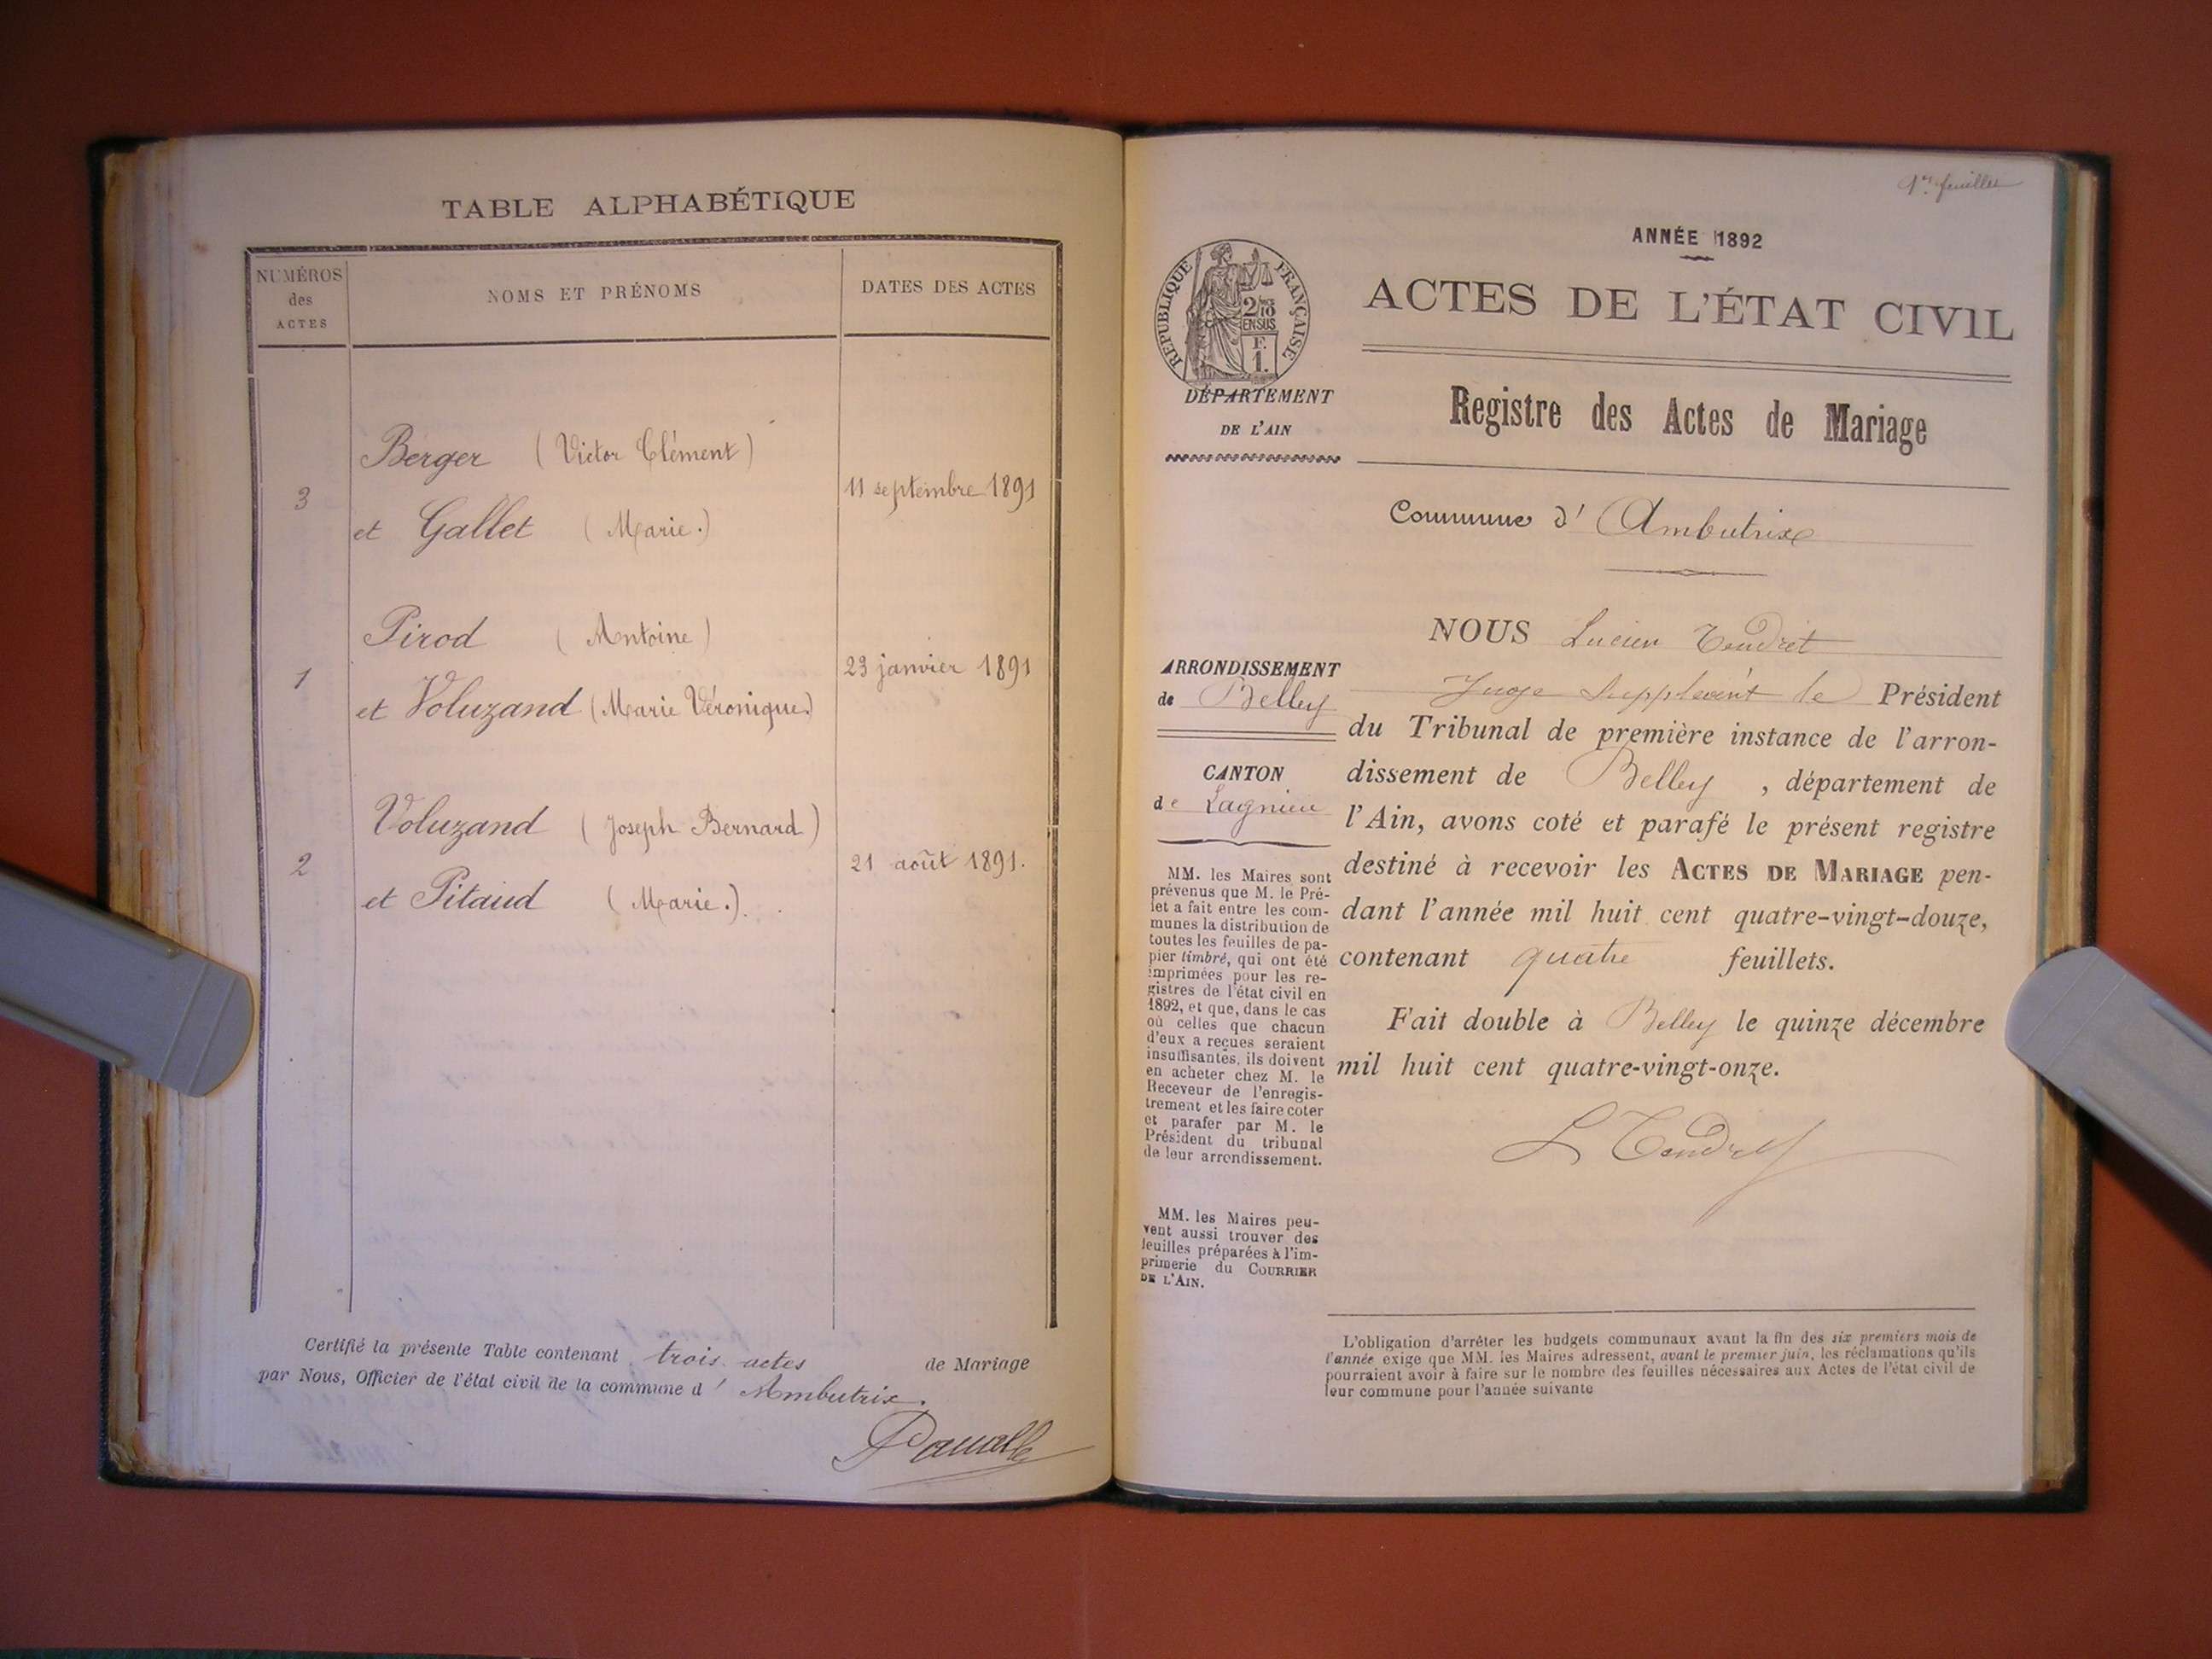 TABLE ALPHABÉTIQUE
NUMÉROS
des
ACTES
NOMS ET PRÉNOMS
DATES DES ACTES
Berger (Victor Clément)
3
11 septembre 1891
et Gallet (Marie.)
Pirod (Antoine)
1
23 janvier 1891
et Voluzand (Marie Véronique.)
Voluzand (Joseph Bernard)
2
21 août 1891.
et Pitaud (Marie.)
Certifié la présente Table contenant trois actes de Mariage
par Nous, Officier de l'état civil de la commune d' Ambutrix.
1er feuillet
ANNÉE 1892
RÉPUBLIQUE FRANÇAISE
2/10
EN SUS
F.
1.
ACTES DE L'ÉTAT CIVIL
DÉPARTEMENT
DE L'AIN
Registre des Actes de Mariage
Commune d' Ambutrix
ARRONDISSEMENT
de Belley
CANTON
de Lagnieu
MM. les Maires sont
prévenus que M. le Pré-
fet a fait entre les com-
munes la distribution de
toutes les feuilles de pa-
pier timbré, qui ont été
imprimées pour les re-
gistres de l'état civil en
1892, et que, dans le cas
où celles que chacun
d'eux a reçues seraient
insuffisantes, ils doivent
en acheter chez M. le
Receveur de l'enregis-
trement et les faire coter
et parafer par M. le
Président du tribunal
de leur arrondissement.
MM. les Maires peu-
vent aussi trouver des
feuilles préparées à l'im-
primerie du COURRIER
DE L'AIN.
NOUS Lucien Tendret
Juge suppléant le Président
du Tribunal de première instance de l'arron-
dissement de Belley, département de
l'Ain, avons coté et parafé le présent registre
destiné à recevoir les ACTES DE MARIAGE pen-
dant l'année mil huit cent quatre-vingt-douze,
contenant quatre feuillets.
Fait double à Belley le quinze décembre
mil huit cent quatre-vingt-onze.
L Tendret
L'obligation d'arrêter les budgets communaux avant la fin des six premiers mois de
l'année exige que MM. les Maires adressent, avant le premier juin, les réclamations qu'ils
pourraient avoir à faire sur le nombre des feuilles nécessaires aux Actes de l'état civil de
leur commune pour l'année suivante